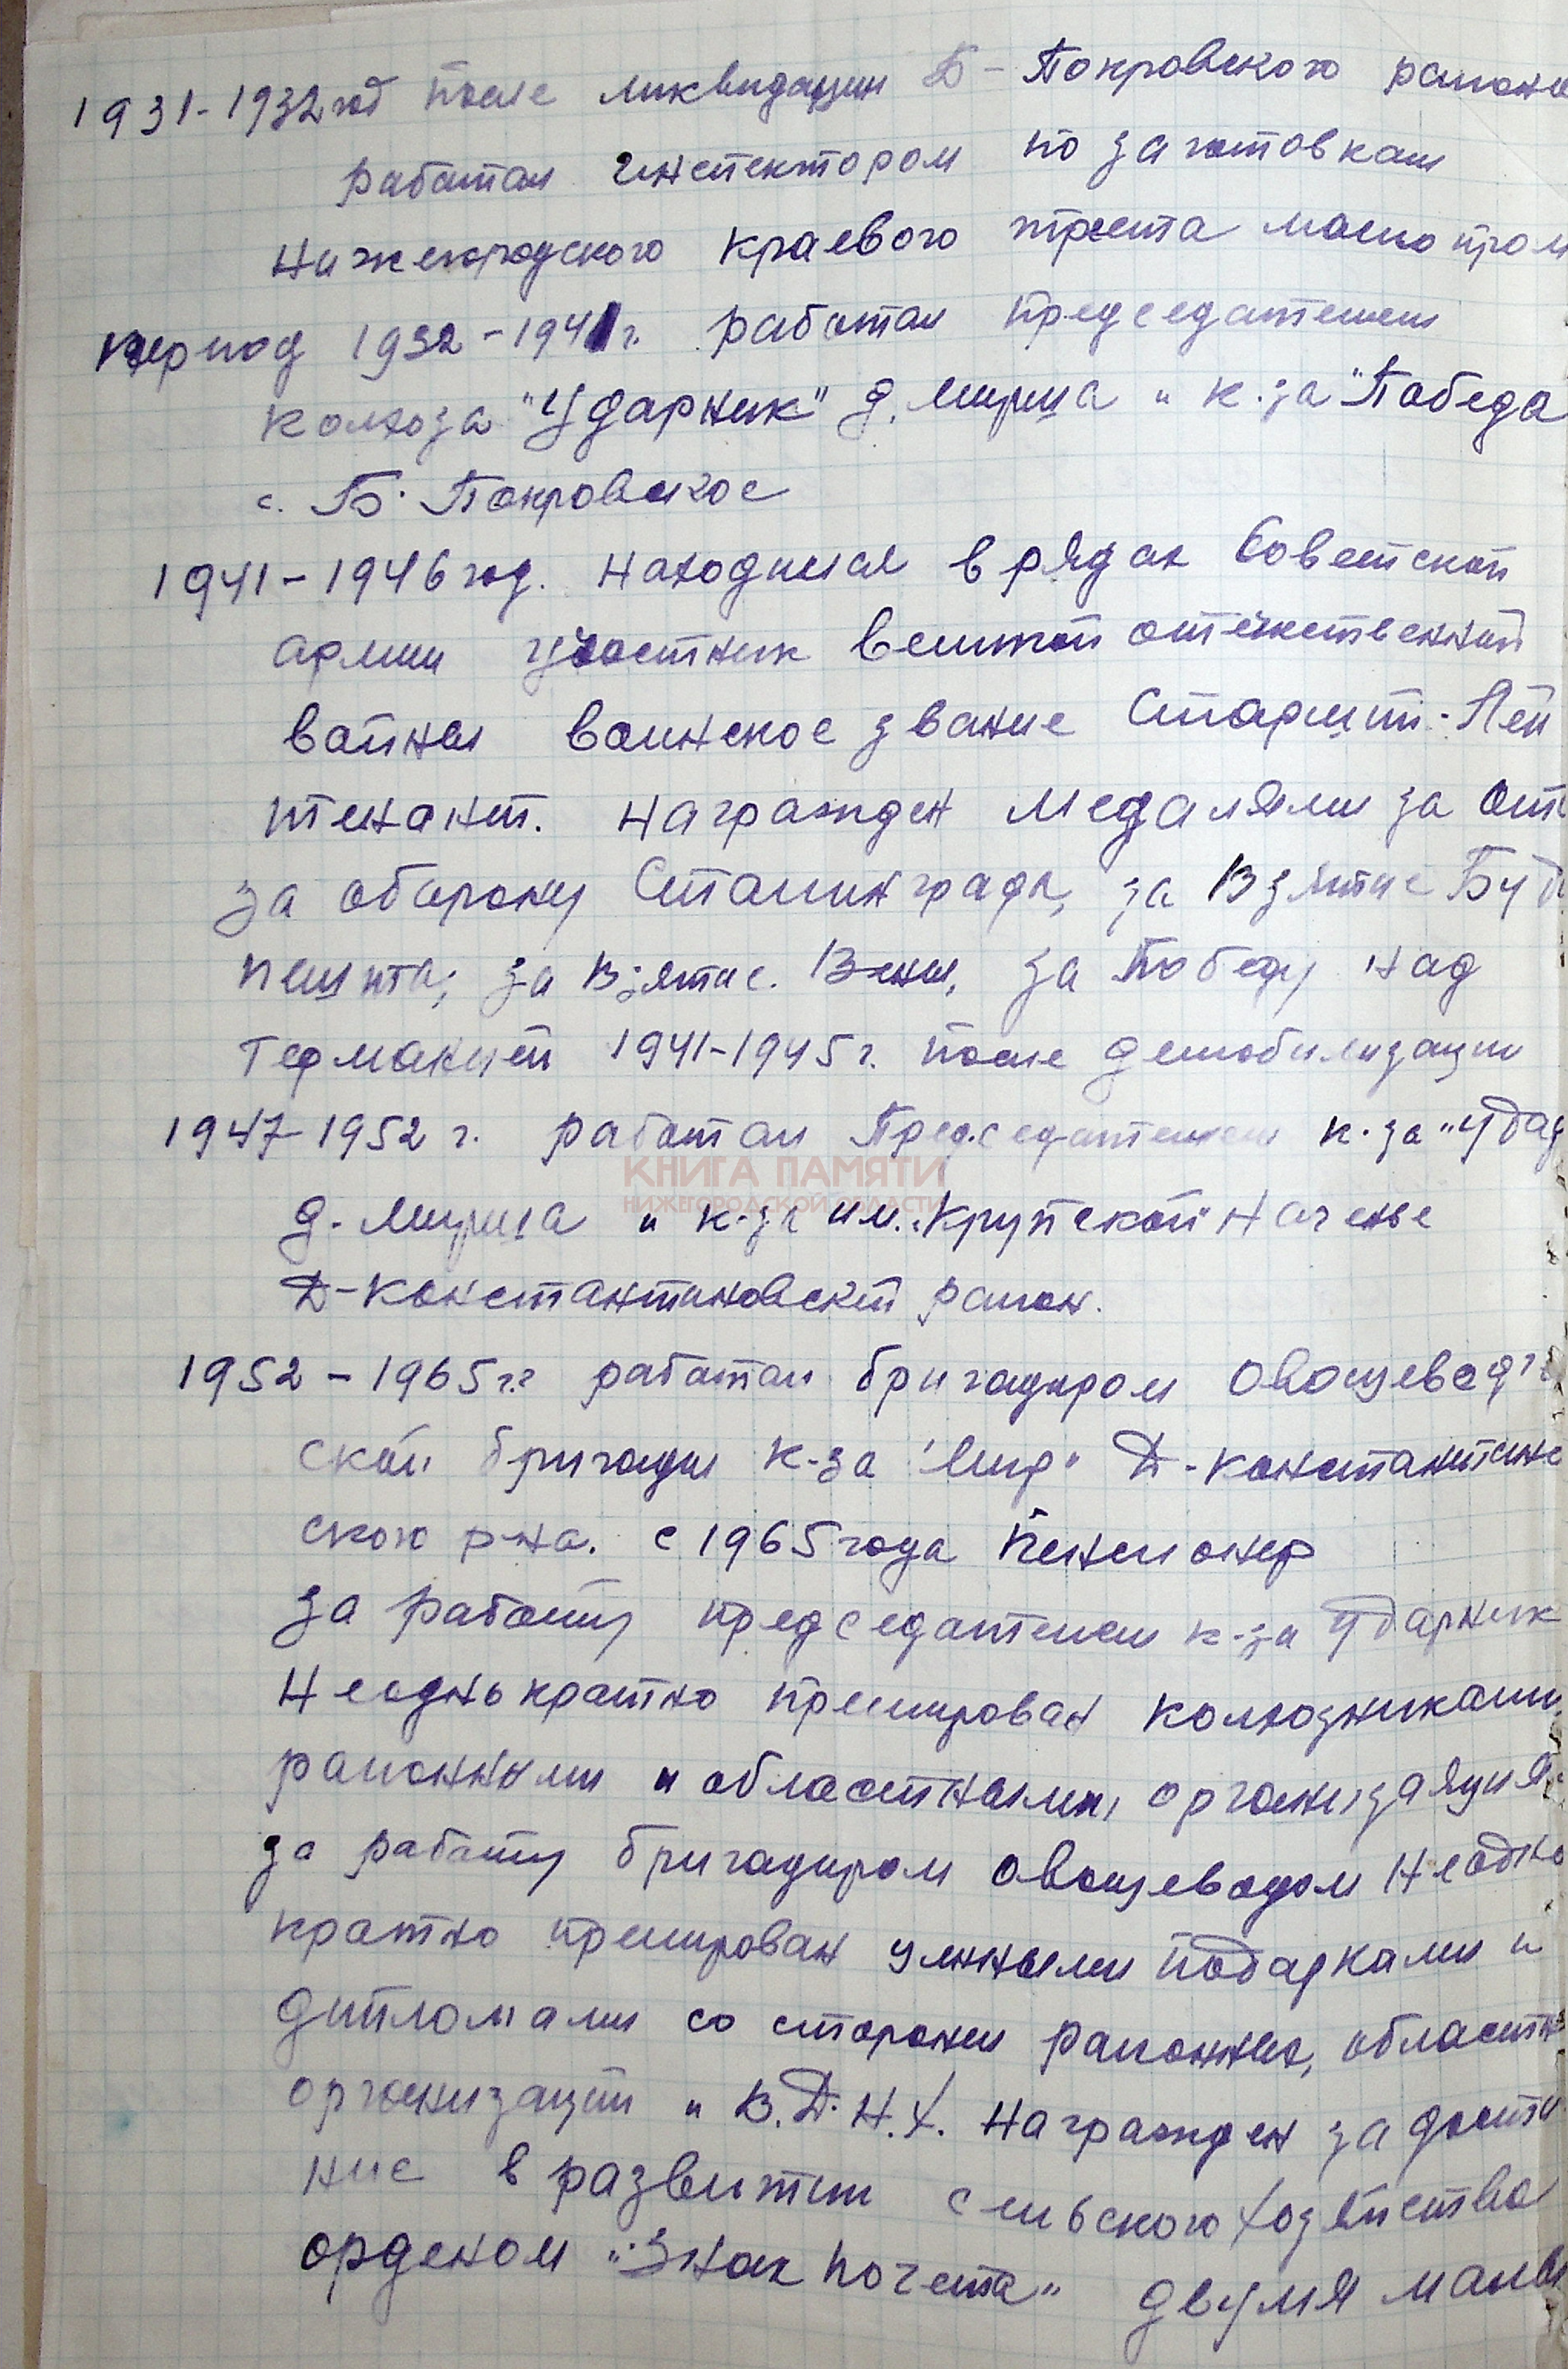 1931-1932 год после ликвидации Б-Покровского района
работал инспектором по заготовкам
Нижегородского краевого треста маслопром
период 1932-1941г. работал председателем
колхоза "Ударник" д. Мириша и к-за "Победа
с. Б. Покровское
1941-1946 год. находился в рядах Советской
армии участник Великой отечественной
войны воинское звание Старший-Лей
тенант. награжден медалями за
за оборону Сталинграда, за Взятие Буда
пешта, за взятие. Вены, за Победу над
Германией 1941-1945г. после демобилизации
1947-1952 г. работал Председателем к-за "Удар
КНИГА ПАМЯТИ
НИЖЕГОРОДСКОЙ ОБЛАСТИ
д. Мириша и к-за им. Крупской
Д-Константиновский район.
1952-1965г.г работал бригадиром овощевод
ской бригады к-за "Мир" Д-Константинов
ского р-на. с 1965 года Пенсионер
за работу председателем к-за Ударник
Неоднократно премирован колхозниками
районными и областными, организация
за работу бригадиром овощеводом Неодно
кратно премирован ценными подарками и
дипломами со стороны районных, областн
организаций и В.Д.Н.Х. Награжден за дости
ние в развитии сельского хозяйства
орденом "Знак почета" двумя малы